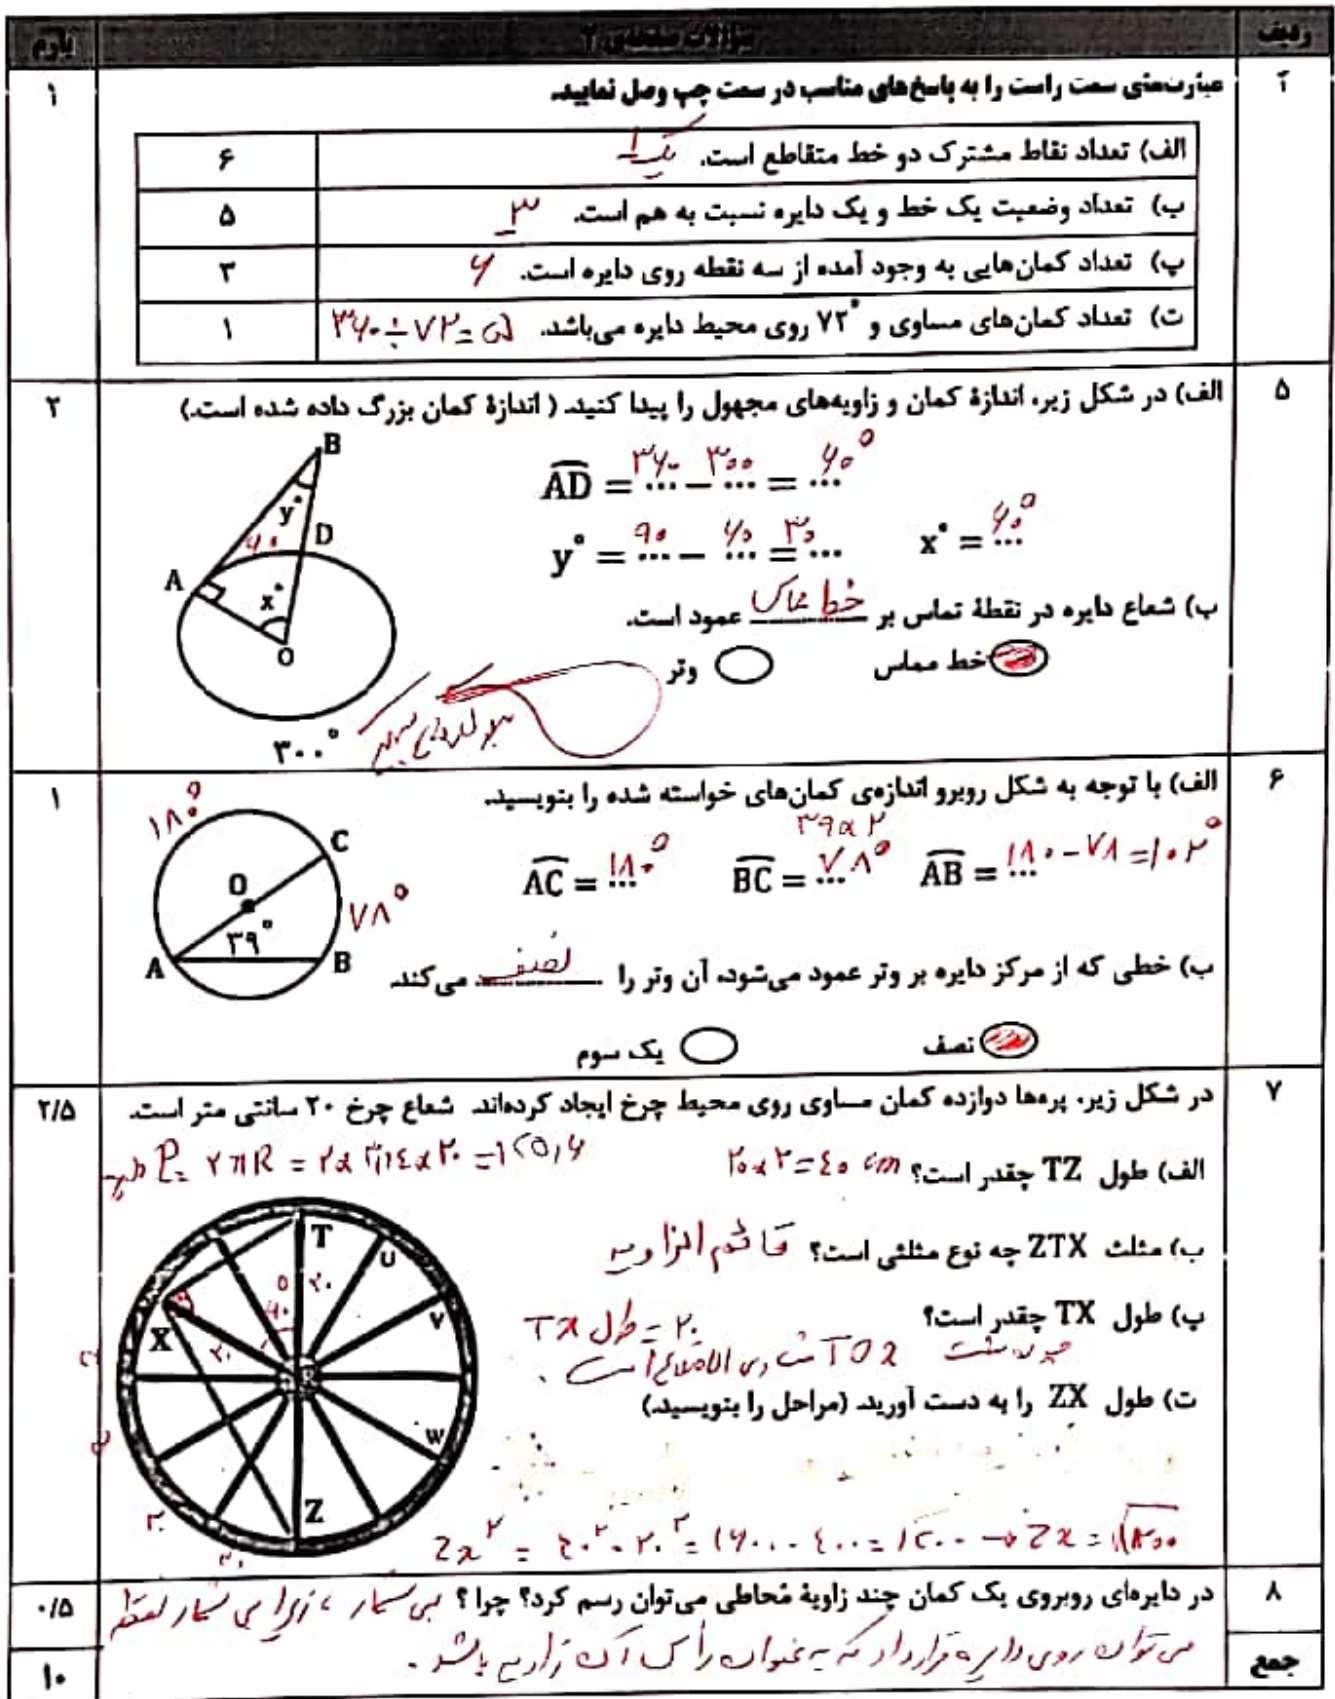 ردیف سؤالات صفحه‌ی ۲ بارم
۴ عبارت‌های سمت راست را به پاسخ‌های مناسب در سمت چپ وصل نمایید. ۱
الف) تعداد نقاط مشترک دو خط متقاطع است. یک ۱ ۶
ب) تعداد وضعیت یک خط و یک دایره نسبت به هم است. ۳ ۵
پ) تعداد کمان‌هایی به وجود آمده از سه نقطه روی دایره است. ۶ ۳
ت) تعداد کمان‌های مساوی و ۷۲° روی محیط دایره می‌باشد. ۳۶۰÷۷۲=۵ ۱
۵ الف) در شکل زیر، اندازهٔ کمان و زاویه‌های مجهول را پیدا کنید. ( اندازهٔ کمان بزرگ داده شده است.) ۲
AD = ۳۶۰ − ۳۰۰ = ۶۰°
y° = ۹۰ − ۶۰ = ۳۰ x° = ۶۰°
B
y°
۶۰
D
A
x°
O
۳۰۰°
ب) شعاع دایره در نقطهٔ تماس بر خط مماس عمود است.
خط مماس وتر
۶ الف) با توجه به شکل روبرو اندازه‌ی کمان‌های خواسته شده را بنویسید. ۱
۳۹×۲
AC = ۱۸۰° BC = ۷۸° AB = ۱۸۰-۷۸=۱۰۲°
۱۸۰°
C
O
۷۸°
۳۹°
A B
ب) خطی که از مرکز دایره بر وتر عمود می‌شود، آن وتر را نصف می‌کند.
نصف یک سوم
۷ در شکل زیر، پره‌ها دوازده کمان مساوی روی محیط چرخ ایجاد کرده‌اند. شعاع چرخ ۲۰ سانتی متر است. ۲/۵
P= ۲πR = ۲×۳,۱۴×۲۰ =۱۲۵,۶
الف) طول TZ چقدر است؟ ۲۰×۲=۴۰ cm
ب) مثلث ZTX چه نوع مثلثی است؟ قائم الزاویه
پ) طول TX چقدر است؟ ۲۰ = طول TX
چون مثلث TOX متساوی الاضلاع است.
ت) طول ZX را به دست آورید. (مراحل را بنویسید.)
T
U
V
X
W
Z
۵
۲۰
۶۰
۲۰
ZX² = ۴۰² - ۲۰² = ۱۶۰۰ - ۴۰۰ = ۱۲۰۰ → ZX = √۱۲۰۰
۸ در دایره‌ای روبروی یک کمان چند زاویهٔ مُحاطی می‌توان رسم کرد؟ چرا؟ بی شمار ، زیرا بی شمار نقطه ۰/۵
می توان روی دایره قرار داد که به عنوان رأس آن زاویه باشد.
جمع ۱۰